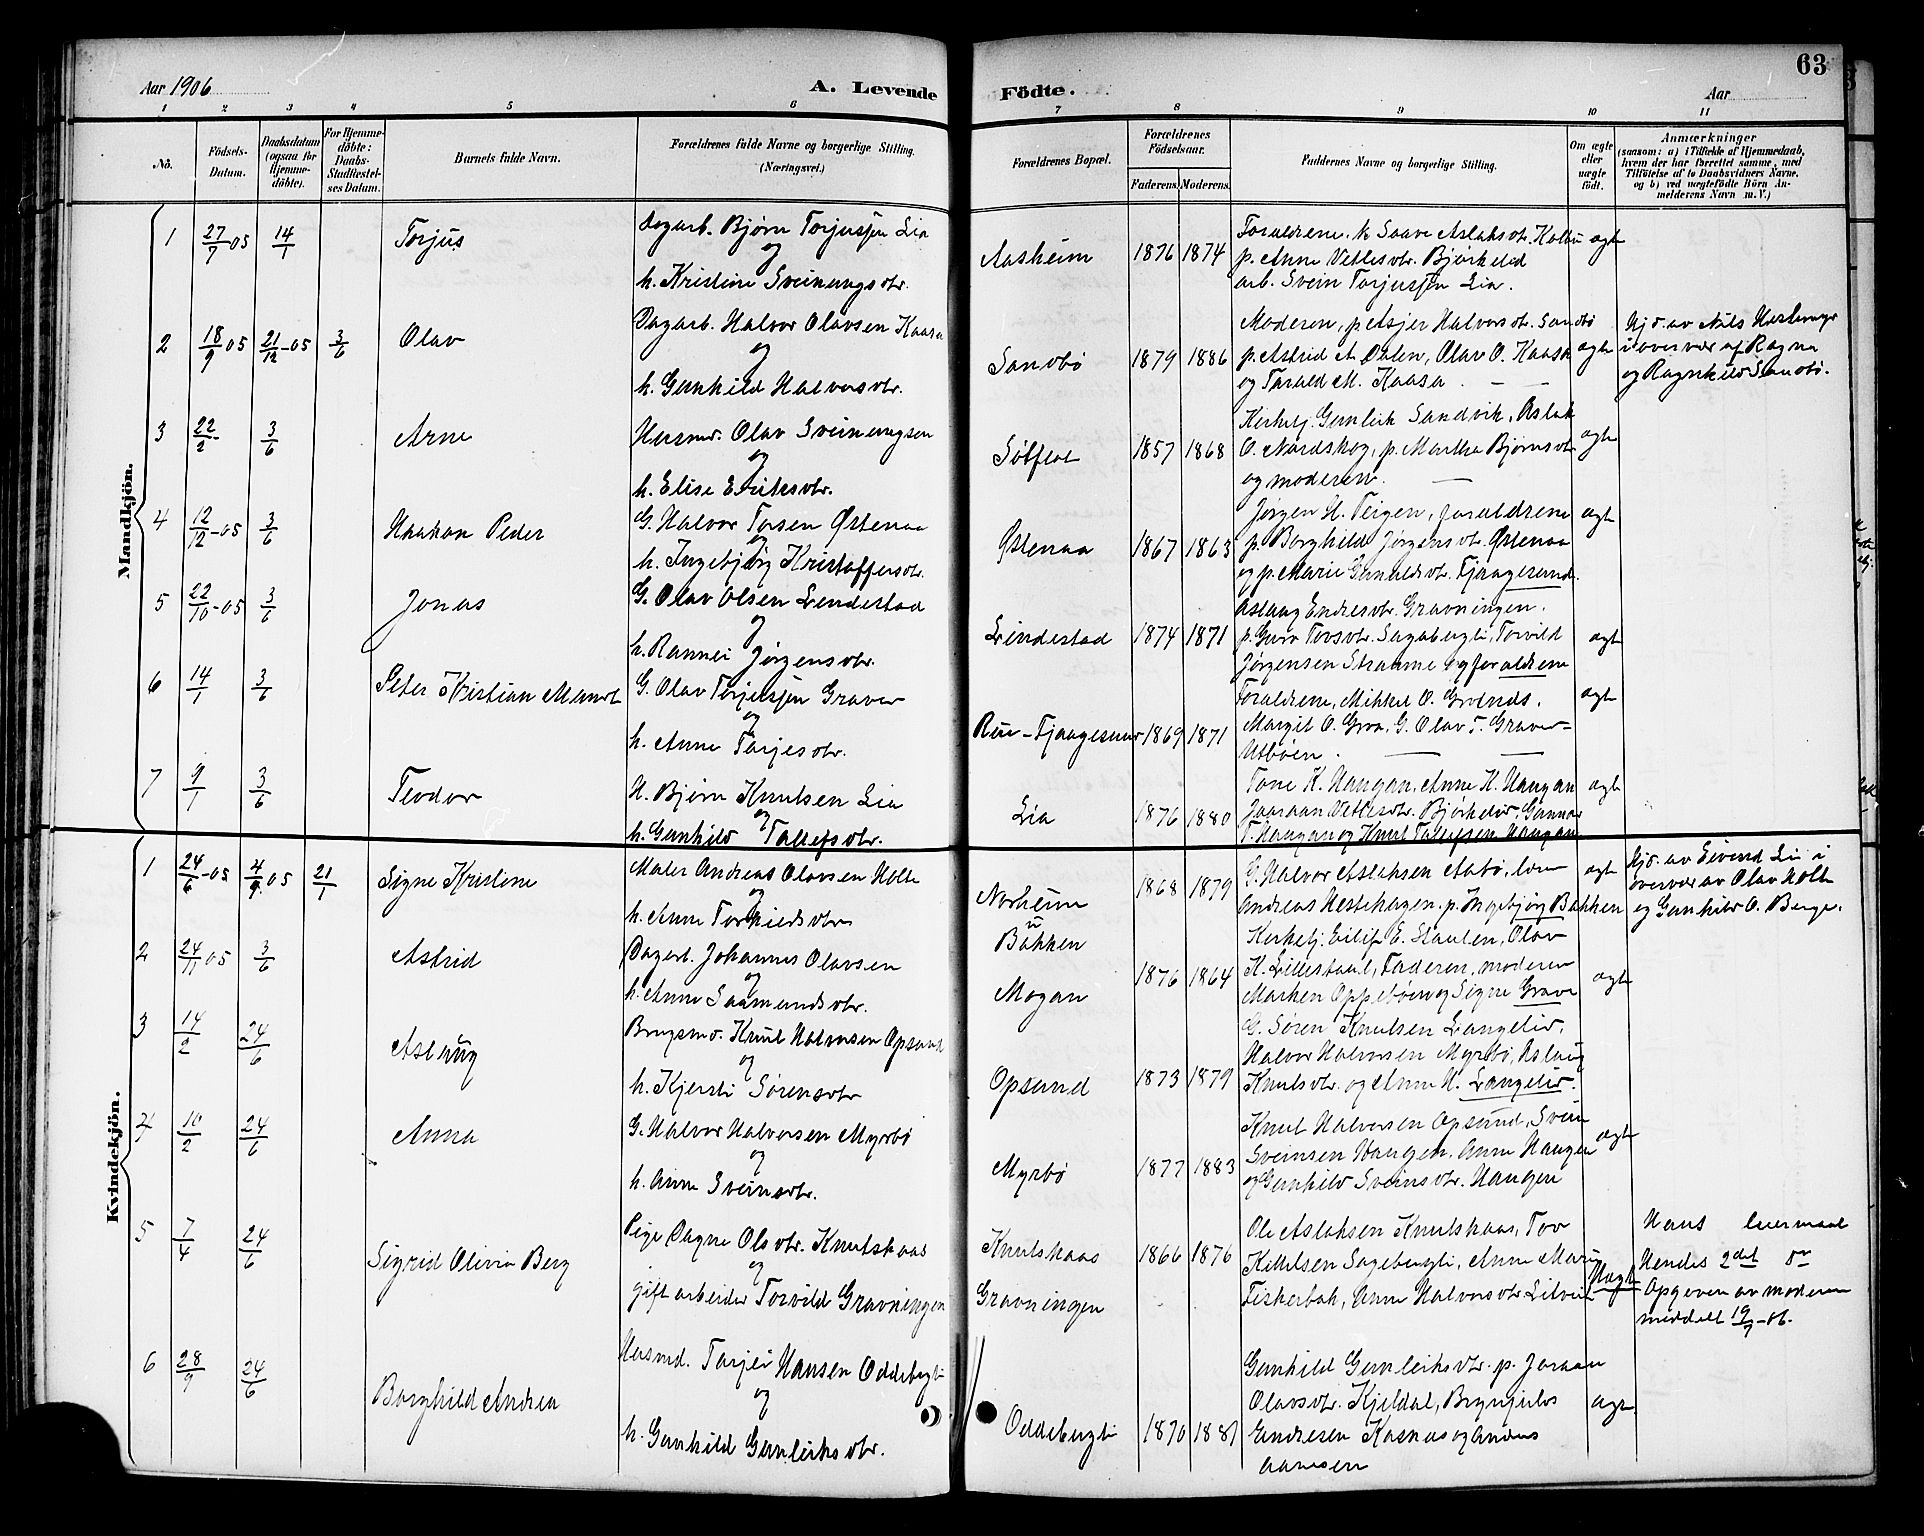 63
Aar 1906
A. Levende
Födte.
Aar
1 2 3 4 5 6 7 8 9 10 11
No.
Födsels-Datum.
Daabsdatum (ogsaa for Hjemme-döbte).
For Hjemme-döbte: Daabs-Stadfæstel-ses Datum.
Barnets fulde Navn.
Forældrenes fulde Navne og borgerlige Stilling. (Næringsvei.)
Forældrenes Bopæl.
Forældrenes Födselsaar.
Faderens. Moderens.
Faddernes Navne og borgerlige Stilling.
Om ægte eller uægte födt.
Anmærkninger
(saasom: a) i Tilfælde af Hjemmedaab,
hvem der har forrettet samme, med
Tilföielse af to Daabsvidners Navne.
og b) ved uægtefödte Börn An-
melderens Navn m. V.)
Mandkjön.
1 27/7 05 14/1 Torjus
Dagarb. Bjørn Torjussen Lia
og
h. Kristine Sveinungsdtr.
Aasheim 1876 1874
Foraldrene, k Saave Aslaksdtr. Holtu
p. Anne Vetlesdtr. Bjørkelid
arb. Svein Torjussen Lia.
agte
2 18/9 05 21/12-05 3/6 Olav
Dagarb. Halvor Olavsen Kaasa
og
h. Gunhild Halvorsdtr.
Sandbö 1879 1886
Moderen, p Asjer Halvorsdtr. Sandbö
p. Astrid A Dalen, Olav O. Kaasa
og Tarald M. Kaasa. —
agte
Hjd. av Nils
i overvær af Ragna
og Ragnhild Sandbö.
3 22/2 3/6 Arne
Husmd. Olav Sveinungsen
og
h. Elise Eriksdtr.
1857 1868
Kirkelj. Gunleik Sandvik, Aslak
O. Nordskog, p. Martha Bjørnsdtr
og moderen. —
agte
4 12/12-05 3/6 Haakon Peder
G. Halvor Torsen Østenaa
og
h. Ingebjørg Kristoffersdtr.
Østenaa 1867 1863
Jørgen H. Teigen, foraldrene
p. Borghild Jørgensdtr. Østenaa
og p. Marie Gunuldsdtr. Fjaagesund.
agte
5 22/10-05 3/6 Jonas
G. Olav Olsen Lindestad
og
h. Rannei Jørgensdtr.
Lindestad 1874 1871
Aslaug Endresdtr. Gravningen.
p. Guro Tovsdtr. Sagabergti, Torvild
Jørgensen Straume og foraldrene
agte
6 14/1 3/6 Peter Kristian Mandt
G. Olav Torjussen Graver
og
h. Anne Tarjesdtr.
Rui-Fjaagesund 1869 1871
Foraldrene, Mikkel O.
Margit O. Groa, G. Olav T. Graver-
Utböen. — —
agte
7 9/1 3/6 Teodor
H. Bjørn Knutsen Lia
og
h. Gunhild Tallefsdtr.
Lia 1876 1880
Tone K. Haugan, Anne K. Haugan
Jaaraan Vetlesdtr. Bjørkelid, Gunnar
T. Haugan og Knut Tallefsen Haugan
agte
Kvindekjön.
1 24/6-05 4/9 05 21/1 Signe Kristine
Maler Andreas Olavsen Holte
og
h. Anne Torkildsdtr
Norheim
u
Bakken
1868 1879
G. Halvor Aslaksen Aabö,
Andreas Hestehagen, p. Ingebjørg Bakken
agte
Hjd. av Eivind Lie i
overvær av Olav Holte
og Gunhild O. Berge.
2 24/11 05 3/6 Astrid
Dagarb. Johannes Olavsen
og
h. Anne Saamundsdtr.
Mogan 1876 1864
Kirkelj. Eilif E. Staulen, Olav
K. Lillestaul, Faderen, moderen
Marken Oppebøen og Signe Grave
agte
3 14/2 24/6 Aslaug
Brugsmd. Knut Halvorsen Opsund
og
h. Kjersti Sørensdtr
Opsund 1873 1879
G. Søren Knutsen Langelid,
Halvor Halvorsen Myrbö, Aslaug
Knutsdtr. og Anne H. Langelid.
4 10/2 24/6 Anna
G. Halvor Halvorsen Myrbö
og
h. Anne Sveinsdtr.
Myrbö 1877 1883
Knut Halvorsen Opsund, Svein
Sveinsen Haugen, Anne Haugen
og Gunhild Sveinsdtr. Haugen
agte
5 7/4 24/6 Sigrid Olivia Berg
Pige Dagne Olsdtr. Knutskaas
og
gift arbeider Torvild Gravningen
Knutskaas
Gravningen
1866 1876
Ole Aslaksen Knutskaas, Tov
Kittilsen Sagebergti, Anne Marie
Fiskerbak, Anne Halvorsdtr
Uægte
Hans leiermaal
Hendes 2det Do
Opgiven av moderen
meddelt 19/7-06.
6 28/9 24/6 Borghild Andrea
Husmd. Tarjei Hansen Oddebergti
og
h. Gunhild Gunleiksdtr.
Oddebergti 1870 1881
Gunhild Gunleiksdtr. p. Joraan
Olavsdtr. Kjeldal, Brynjulv
Endresen Kasnes og Anders
Aanesen
agte.